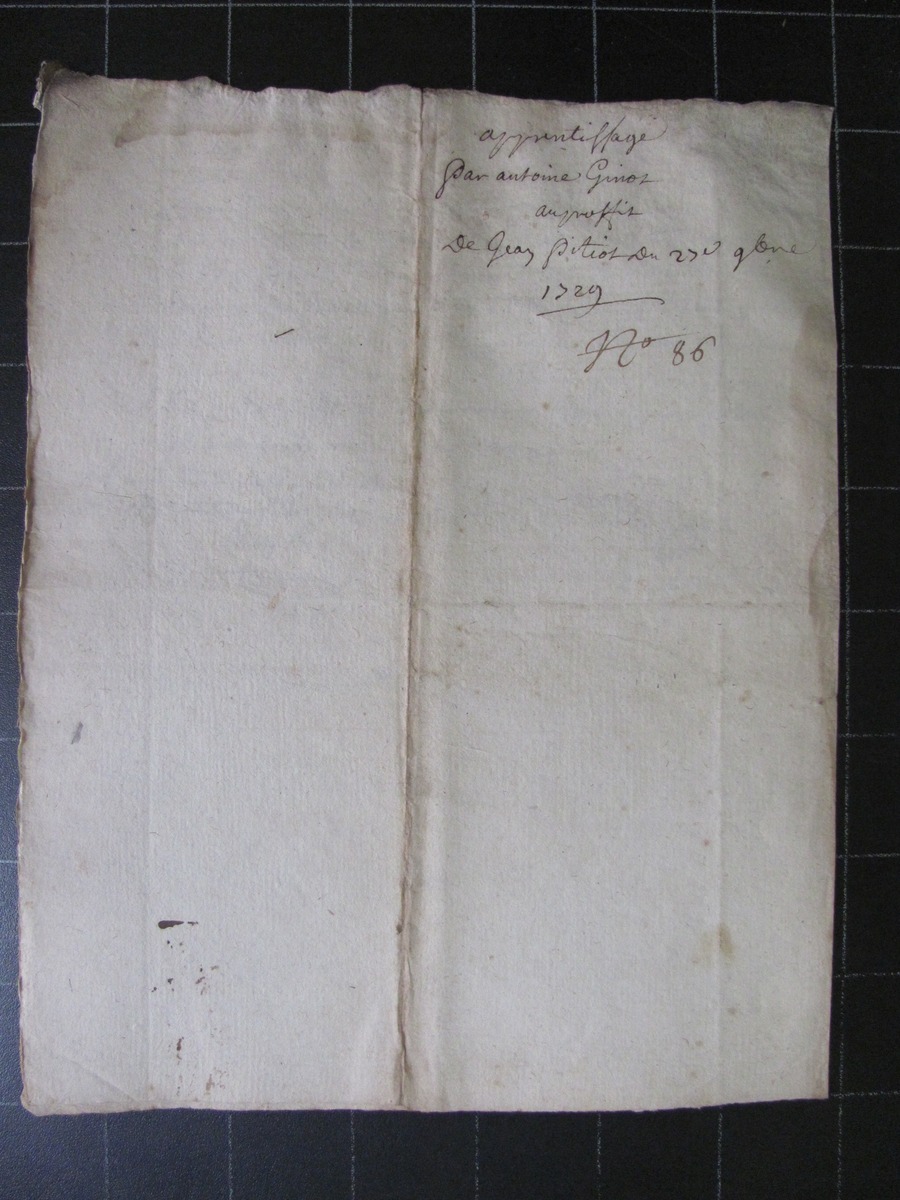 apprentissage
par antoine Ginot
au proffit
De Jean Pitiot du 27e 9bre
1729
No 86